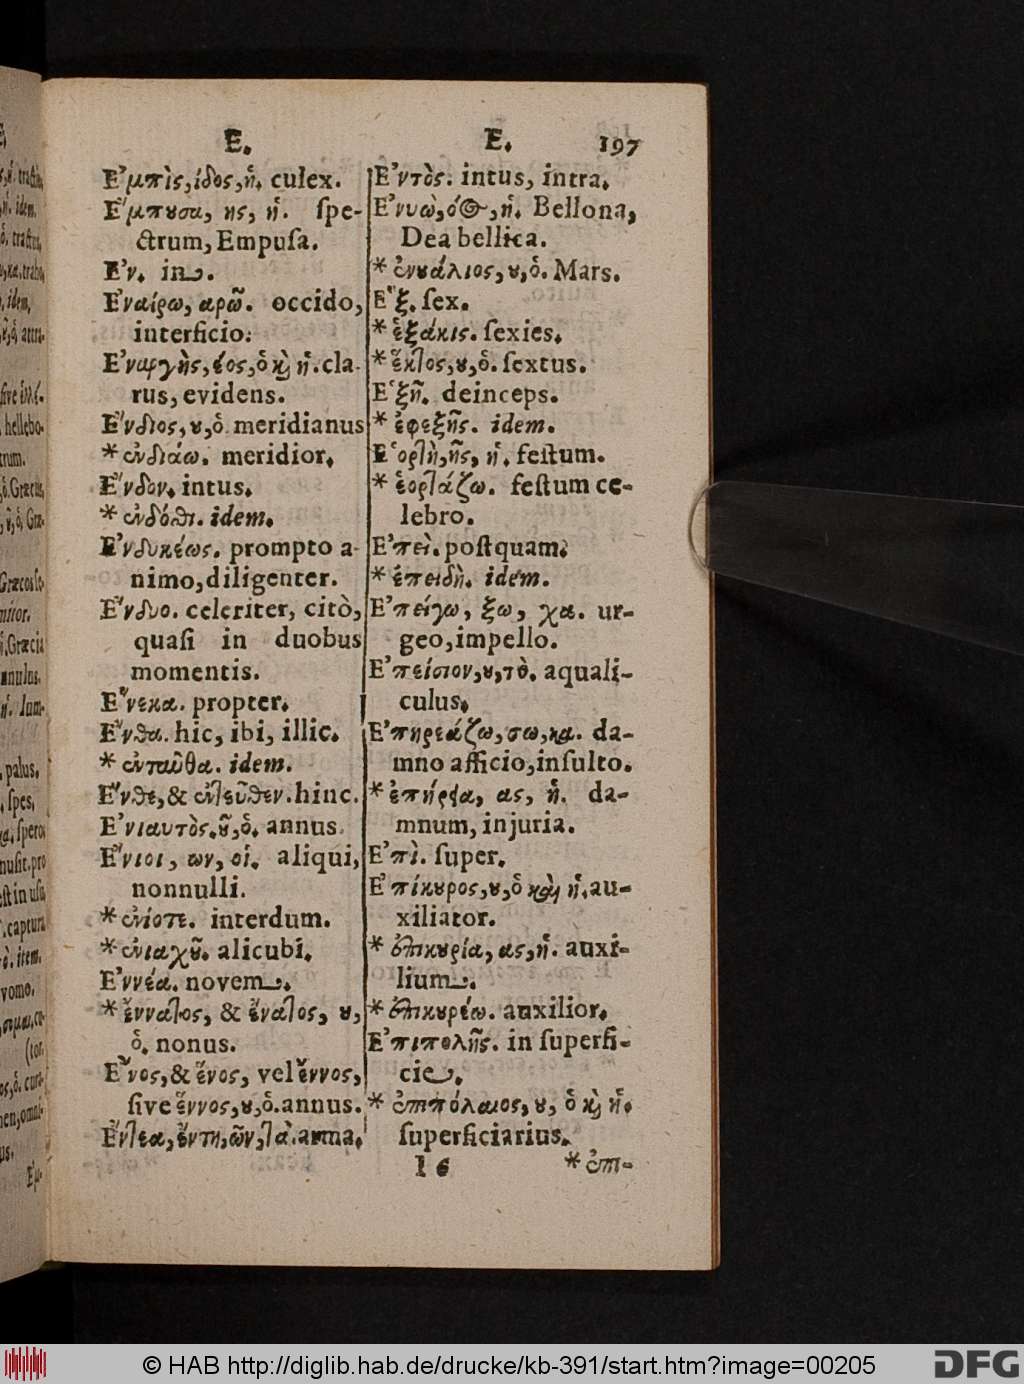 E.
Ε᾿μπὶς, ίδος, ἡ. culex.
Ε῎μπουσα, ης, ἡ. ſpe-
ctrum, Empuſa.
Ε᾿ν. in.
Ε᾿ναίρω, αρῶ. occido,
interficio.
Ε᾿ναργὴς, έος, ὁ καὶ ἡ. cla-
rus, evidens.
Ε῎νδιος, ου, ὁ. meridianus
* ἐνδιάω. meridior.
Ε῎νδον. intus.
* ἐνδόθι. idem.
Ε᾿νδυκέως. prompto a-
nimo, diligenter.
Ε῎νδυο. celeriter, citò,
quaſi in duobus
momentis.
Ε῞νεκα. propter.
Ε῎νθα. hic, ibi, illic.
* ἐνταῦθα. idem.
Ε῎νθε, & ἐντεῦθεν. hinc.
Ε᾿νιαυτὸς. οῦ, ὁ. annus.
Ε῎νιοι, ων, οἱ. aliqui,
nonnulli.
* ἐνίοτε. interdum.
* ἐνιαχοῦ. alicubi.
Ε᾿ννέα. novem.
* ἔννατος, & ἔνατος, ου,
ὁ. nonus.
Ε῞νος, & ἕνος, vel ἔννος,
ſive ἕννος, ου, ὁ. annus.
Ε῎ντεα, ἔντη, ῶν, τὰ. arma.
E. 197
Ε᾿ντὸς. intus, intra.
Ε᾿νυὼ, όος, ἡ. Bellona,
Dea bellica.
* ἐνυάλιος, ου, ὁ. Mars.
Ε῝ξ. ſex.
* ἑξάκις. ſexies.
* ἕκτος, ου, ὁ. ſextus.
Ε῾ξῆ. deinceps.
* ἐφεξῆς. idem.
Ε῾ορτὴ, ῆς, ἡ. feſtum.
* ἑορτάζω. feſtum ce-
lebro.
Ε᾿πεὶ. poſtquam.
* ἐπειδὴ. idem.
Ε᾿πείγω, ξω, χα. ur-
geo, impello.
Ε᾿πείσιον, ου, τὸ. aquali-
culus.
Ε᾿πηρεάζω, σω, κα. da-
mno afficio, inſulto.
* ἐπήρεια, ας, ἡ. da-
mnum, injuria.
Ε᾿πὶ. ſuper.
Ε᾿πίκουρος, ου, ὁ καὶ ἡ. au-
xiliator.
* ἐπικουρία, ας, ἡ. auxi-
lium.
* ἐπικουρέω. auxilior.
Ε᾿πιπολῆς. in ſuperfi-
cie.
* ἐπιπόλαιος, ου, ὁ καὶ ἡ.
ſuperficiarius.
I 6 * ἐπι-
© HAB http://diglib.hab.de/drucke/kb-391/start.htm?image=00205 DFG